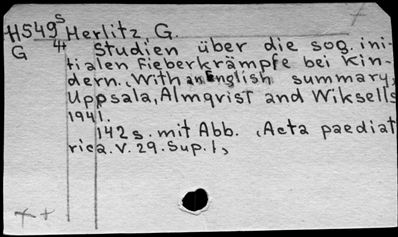 H549 s Herlitz, G.
G 4t Studien über die sog. ini-
tialen Fieberkrämpfe bei Kin-
dern. With an English summary,
Uppsala, Almqvist and Wiksells
1941.
142 s. mit Abb. (Acta paediat
rica. V. 29. Sup. 1,